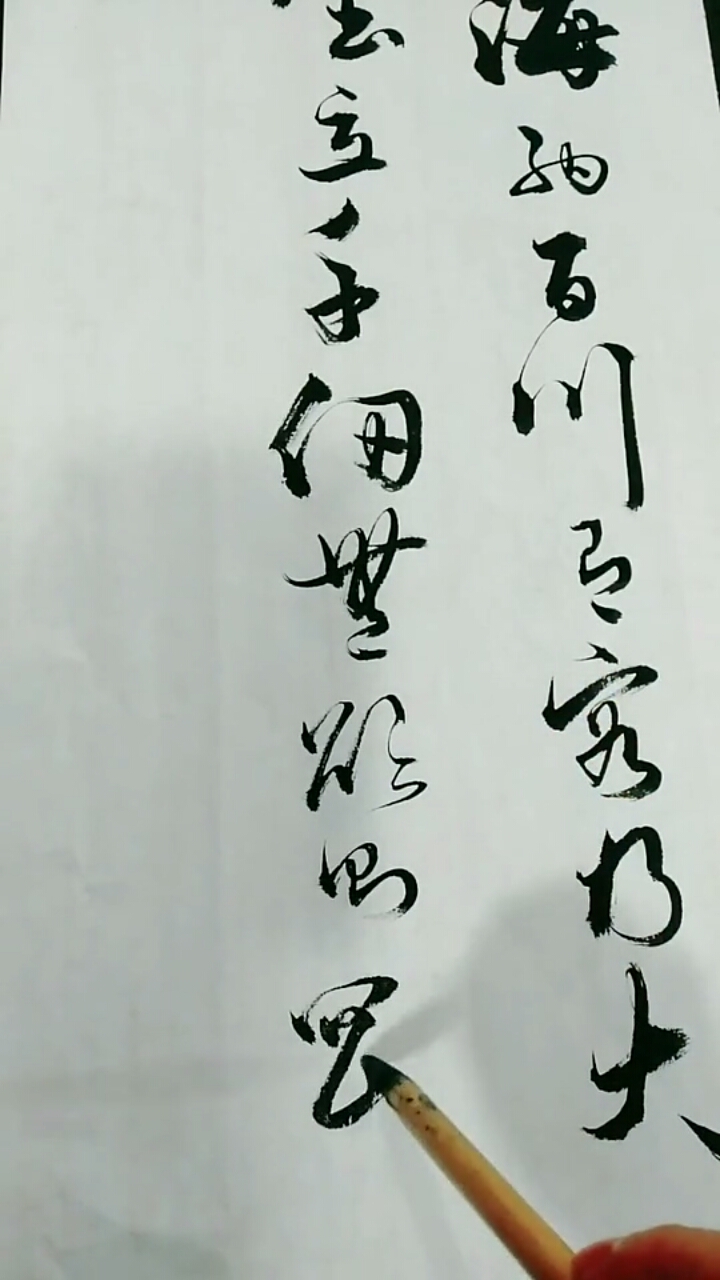 海纳百川有容乃大
壁立千仞無欲则剛